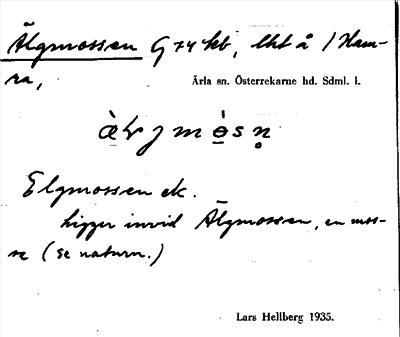 Älgmossen G 74 kb, lht å / Ham-
ra,
Ärla sn. Österrekarne hd. Sdml. l.
Elgmossen ek.
ligger invid Älgmossen, en mos-
se (se naturn.)
Lars Hellberg 1935.